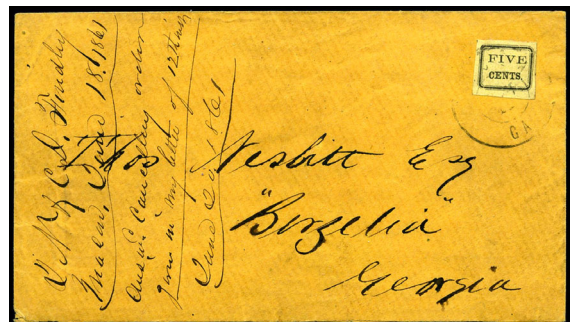 FIVE
CENTS.
GA
Thos Nesbitt Esq
"Berzelia"
Georgia
R N & C D. Findlay
Macon, June 18. 1861
Ans'd. Canceling order
in my letter of 12th
June 1861